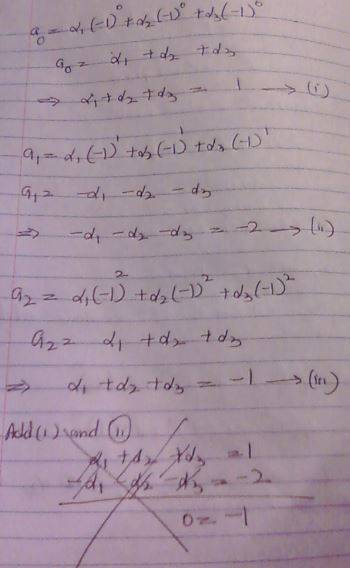 a₀ = α₁(-1)⁰ + α₂(-1)⁰ + α₃(-1)⁰
a₀ = α₁ + α₂ + α₃
⇒ α₁ + α₂ + α₃ = 1 → (i)
a₁ = α₁(-1)¹ + α₂(-1)¹ + α₃(-1)¹
a₁ = -α₁ - α₂ - α₃
⇒ -α₁ - α₂ - α₃ = -2 → (ii)
a₂ = α₁(-1)² + α₂(-1)² + α₃(-1)²
a₂ = α₁ + α₂ + α₃
⇒ α₁ + α₂ + α₃ = -1 → (iii)
Add (i) and (ii)
α₁ + α₂ + α₃ = 1
-α₁ - α₂ - α₃ = -2
0 = -1